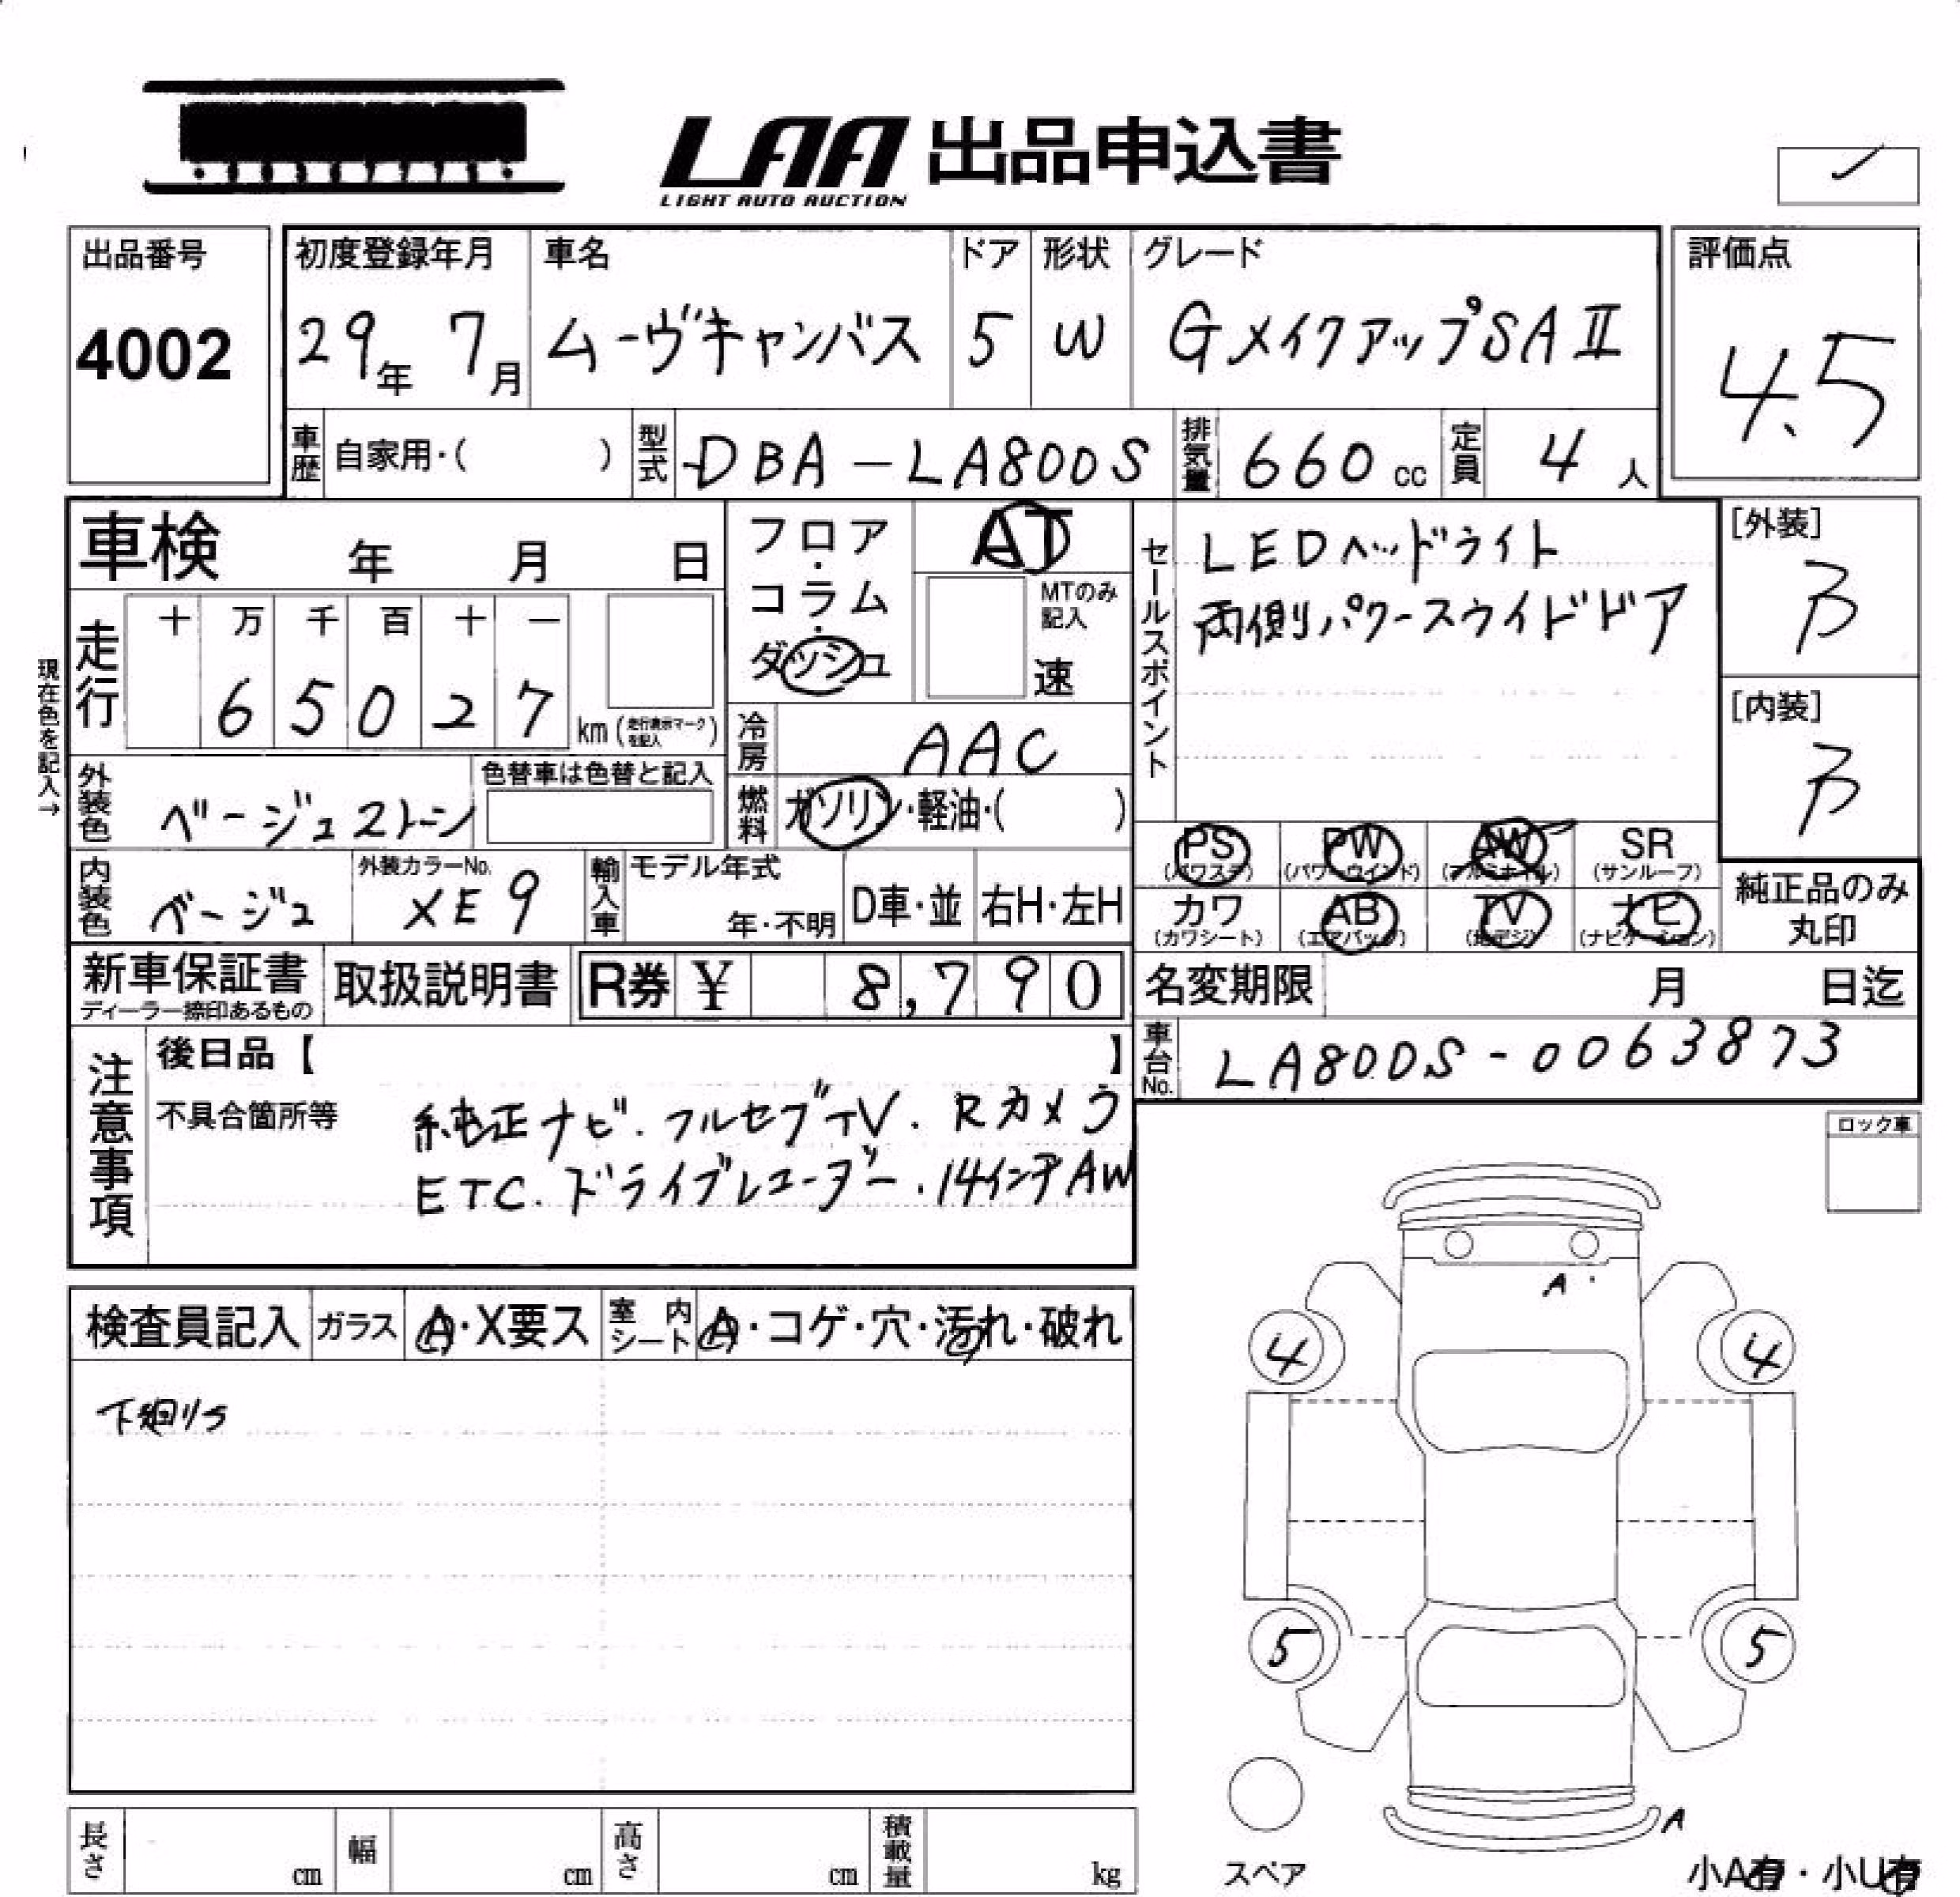 LAA 出品申込書
LIGHT AUTO AUCTION
出品番号
4002
初度登録年月
29年 7月
車名
ムーヴキャンバス
ドア
5
形状
W
グレード
GメイクアップSAⅡ
評価点
4.5
車歴 自家用・( )
型式 DBA-LA800S
排気量 660 cc
定員 4 人
車検 年 月 日
フロア・コラム・ダッシュ
AT
MTのみ記入
速
セールスポイント
LEDヘッドライト
両側パワースライドドア
[外装]
B
[内装]
B
現在色を記入→
走行
十 万 千 百 十 一
6 5 0 2 7 km (走行表示マークを記入)
冷房 AAC
外装色 ベージュ2トーン
色替車は色替と記入
燃料 ガソリン・軽油・( )
内装色 ベージュ
外装カラーNo. XE9
輸入車 モデル年式 年・不明
D車・並 右H・左H
PS (パワステ) PW (パワーウインド) AW (アルミホイル) SR (サンルーフ)
カワ (カワシート) AB (エアバッグ) TV (地デジ) ナビ (ナビゲーション)
純正品のみ丸印
新車保証書
ディーラー捺印あるもの
取扱説明書
R券 ¥ 8,790
名変期限 月 日迄
車台No. LA800S-0063873
注意事項
後日品【 】
不具合箇所等
純正ナビ.フルセグTV.Rカメラ
ETC.ドライブレコーダー.14インチAW
ロック車
検査員記入
ガラス A・X要ス
室内シート A・コゲ・穴・汚れ・破れ
下廻りサ
A
4 4
5 5
A
スペア
長さ cm
幅 cm
高さ cm
積載量 kg
小A有・小U有